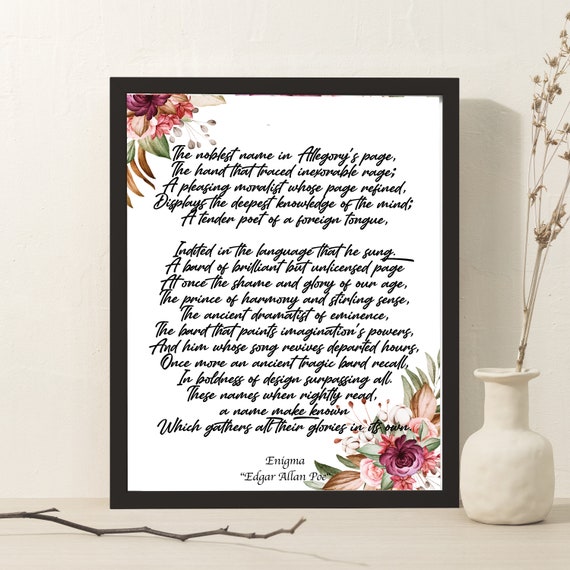 The noblest name in Allegory's page,
The hand that traced inexorable rage;
A pleasing moralist whose page refined,
Displays the deepest knowledge of the mind;
A tender poet of a foreign tongue,
Indited in the language that he sung.
A bard of brilliant but unlicensed page
At once the shame and glory of our age,
The prince of harmony and stirling sense,
The ancient dramatist of eminence,
The bard that paints imagination's powers,
And him whose song revives departed hours,
Once more an ancient tragic bard recall,
In boldness of design surpassing all.
These names when rightly read,
a name make known
Which gathers all their glories in its own.
Enigma
"Edgar Allan Poe"